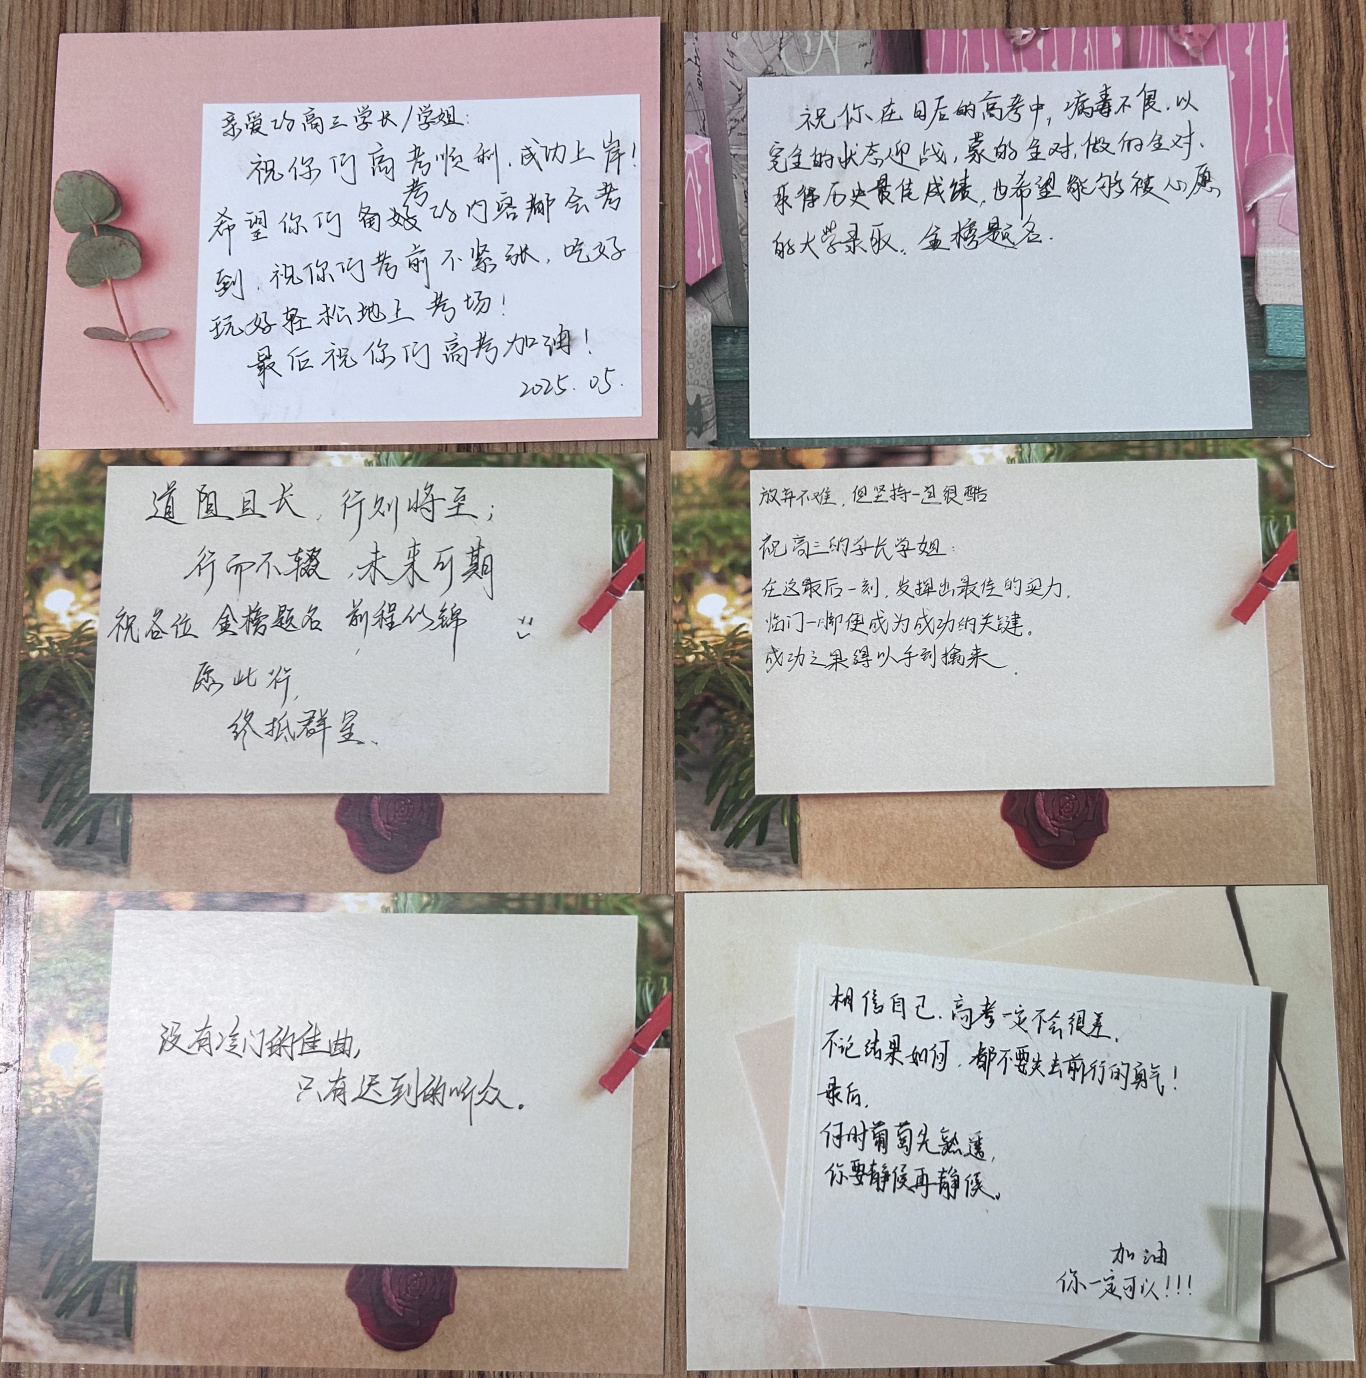 亲爱的高三学长/学姐:
祝你们高考顺利,成功上岸!
希望你们备考的内容都会考
到,祝你们考前不紧张,吃好
玩好轻松地上考场!
最后祝你们高考加油!
2025.05.
祝你在日后的高考中,病毒不侵,以
完全的状态迎战,蒙的全对,做的全对.
取得历史最佳成绩,也希望能够被心愿
的大学录取,金榜题名.
道阻且长,行则将至;
行而不辍,未来可期
祝各位 金榜题名 前程似锦
愿此行,
终抵群星、
放弃不难,但坚持一定很酷
祝高三的学长学姐:
在这最后一刻,发挥出最佳的实力,
临门一脚便成为成功的关键。
成功之果得以手到擒来.
没有冷门的佳曲,
只有迟到的听众。
相信自己,高考一定不会很差,
不论结果如何,都不要失去前行的勇气!
最后,
何时葡萄先熟透,
你要静候再静候。
加油
你一定可以!!!